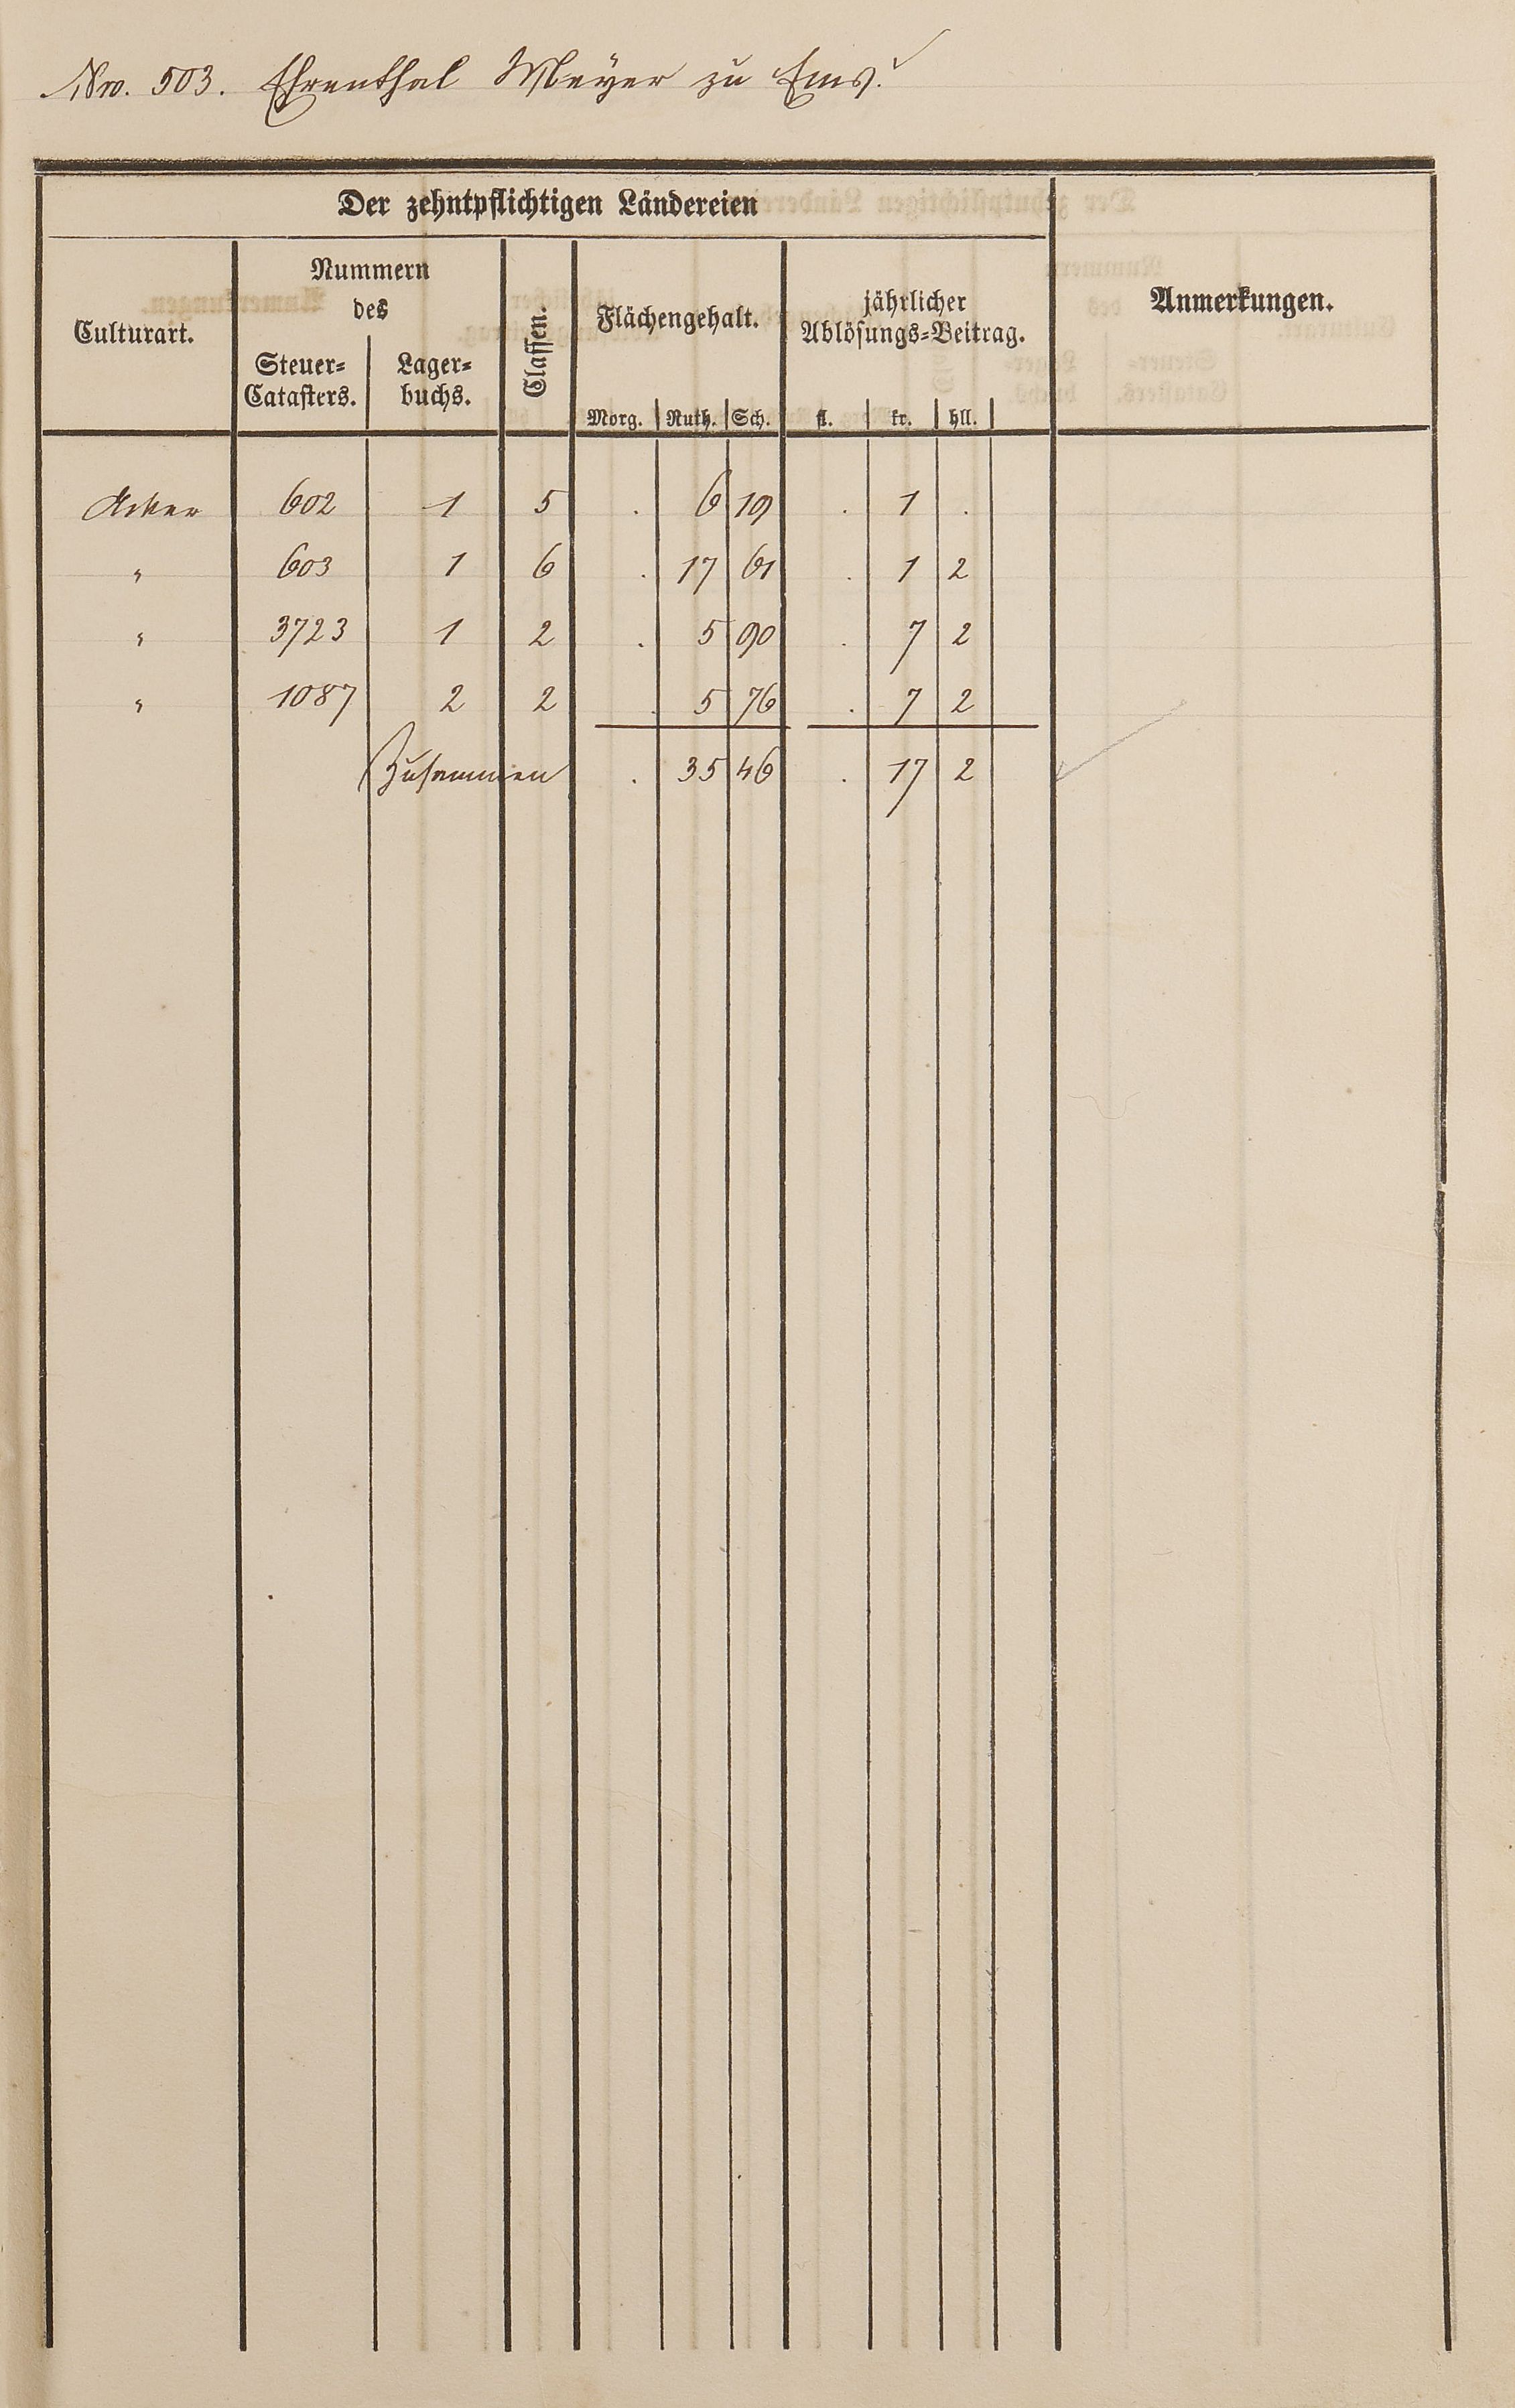 Nro. 503. Ehrenthal Meyer zu Ems.
Der zehntpflichtigen Ländereien
Culturart.
Nummern
des
Steuer-
Catasters.
Lager-
buchs.
Classen.
Flächengehalt.
Morg. Ruth. Sch.
jährlicher
Ablösungs-Beitrag.
fl. kr. hll.
Anmerkungen.
Acker 602 1 5 . 6 19 . 1 .
" 603 1 6 . 17 61 . 1 2
" 3723 1 2 . 5 90 . 7 2
" 1087 2 2 . 5 76 . 7 2
Zusammen . 35 46 . 17 2